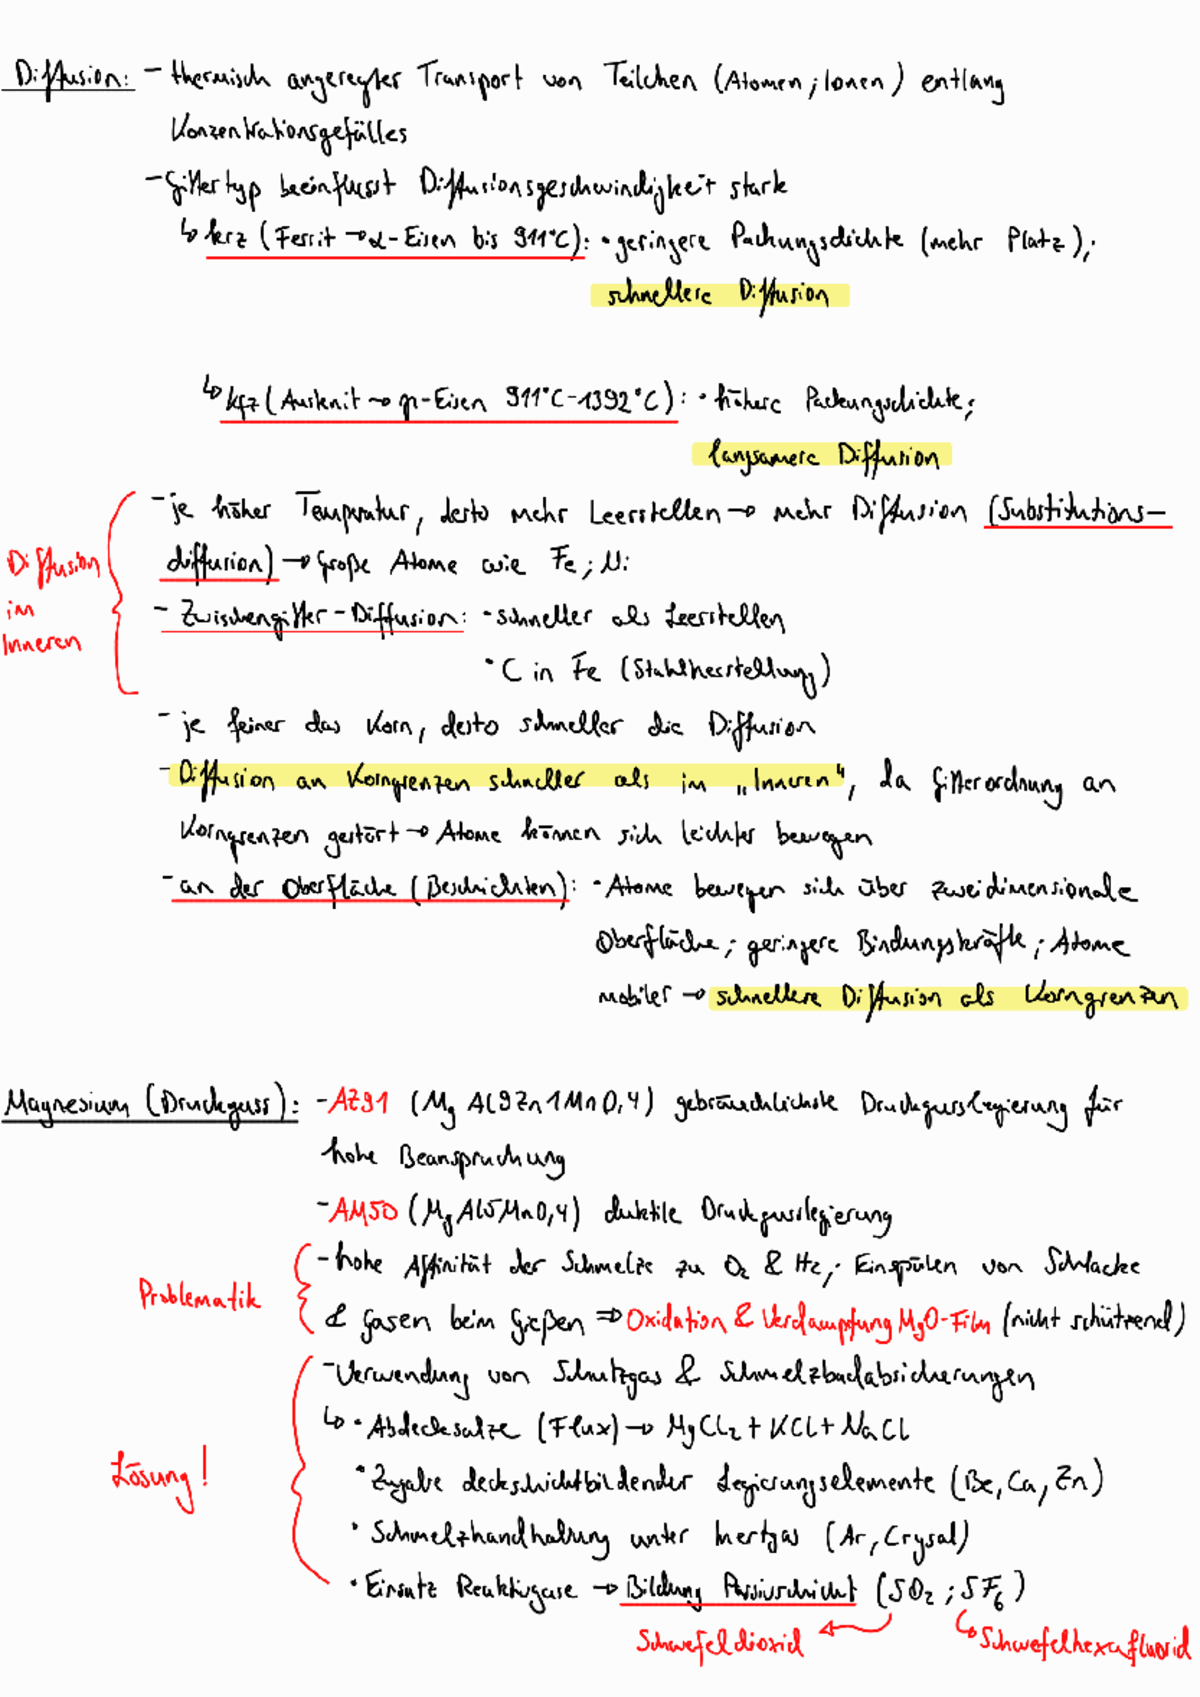 Diffusion: - thermisch angeregter Transport von Teilchen (Atomen; Ionen) entlang
Konzentrationsgefälles
- Gittertyp beeinflusst Diffusionsgeschwindigkeit stark
↳ krz (Ferrit → α-Eisen bis 911°C): • geringere Packungsdichte (mehr Platz);
schnellere Diffusion
↳ kfz (Austenit → γ-Eisen 911°C-1392°C): • höhere Packungsdichte;
langsamere Diffusion
- je höher Temperatur, desto mehr Leerstellen → mehr Diffusion (Substitutions-
diffusion) → Große Atome wie Fe; Ni
Diffusion
im
Inneren
- Zwischengitter-Diffusion: • schneller als Leerstellen
• C in Fe (Stahlherstellung)
- je feiner das Korn, desto schneller die Diffusion
- Diffusion an Korngrenzen schneller als im „Inneren“, da Gitterordnung an
Korngrenzen gestört → Atome können sich leichter bewegen
- an der Oberfläche (Beschichten): • Atome bewegen sich über zweidimensionale
Oberfläche; geringere Bindungskräfte; Atome
mobiler → schnellere Diffusion als Korngrenzen
Magnesium (Druckguss): - AZ91 (Mg Al9Zn1Mn0,4) gebräuchlichste Druckgusslegierung für
hohe Beanspruchung
- AM50 (MgAl5Mn0,4) duktile Druckgusslegierung
Problematik
- hohe Affinität der Schmelze zu O2 & H2; Einspülen von Schlacke
& Gasen beim Gießen ⇒ Oxidation & Verdampfung MgO-Film (nicht schützend)
Lösung!
- Verwendung von Schutzgas & Schmelzbadabsicherungen
↳ • Abdecksalze (Flux) → MgCl2 + KCl + NaCl
• Zugabe deckschichtbildender Legierungselemente (Be, Ca, Zn)
• Schmelzhandhabung unter Inertgas (Ar, Crysal)
• Einsatz Reaktivgase → Bildung Passivschicht (SO2; SF6)
Schwefeldioxid ← ↳ Schwefelhexafluorid